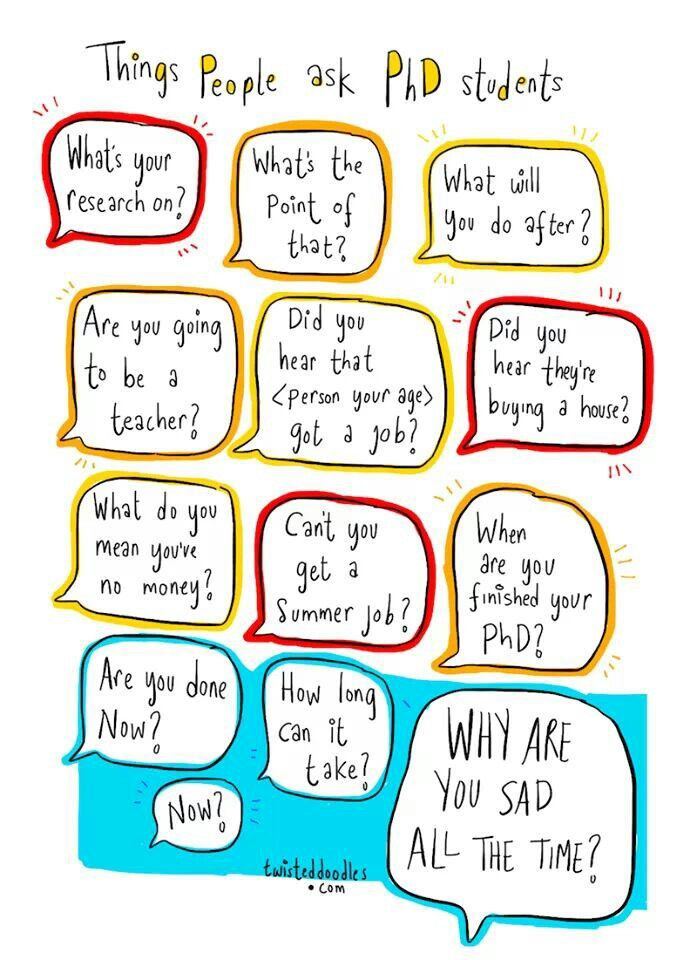 Things People ask PhD students
What's your
research on?
What's the
Point of
that?
What will
you do after?
Are you going
to be a
teacher?
Did you
hear that
<person your age>
got a job?
Did you
hear they're
buying a house?
What do you
mean you've
no money?
Can't you
get a
Summer job?
When
are you
finished your
PhD?
Are you done
Now?
How long
can it
take?
Now?
WHY ARE
YOU SAD
ALL THE TIME?
twisteddoodles
.com